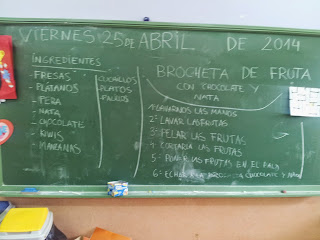 VIERNES 25 DE ABRIL DE 2014
INGREDIENTES
- FRESAS
- PLATANOS
- PERA
- NATA
- CHOCOLATE
- KIWIS
- MANZANAS
CUCHILLOS
PLATOS
PALILLOS
BROCHETA DE FRUTA
CON CHOCOLATE Y
NATA
1- LAVARNOS LAS MANOS
2- LAVAR LAS FRUTAS
3- PELAR LAS FRUTAS
4- CORTAR LAS FRUTAS
5- PONER LAS FRUTAS EN EL PALO
6- ECHAR CHOCOLATE Y NATA